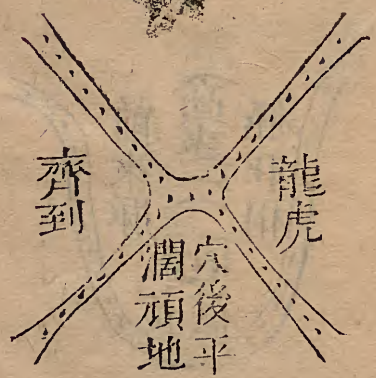 龍虎
齊到
穴後平
濶頑地